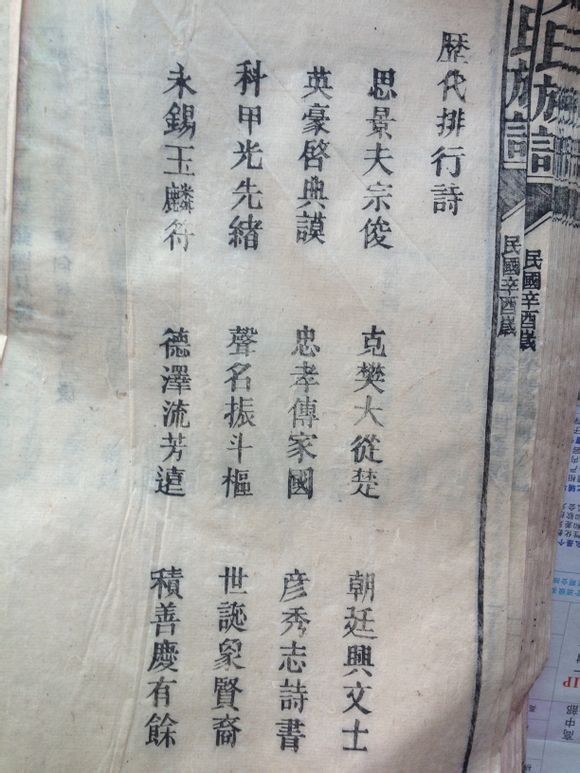 歷代排行詩
思景夫宗俊 克樊大從楚 朝廷興文士
英豪啓典謨 忠孝傳家國 彦秀志詩書
科甲光先緒 聲名振斗樞 世誕象賢裔
永錫玉麟符 德澤流芳遠 積善慶有餘
民國辛酉歲
民國辛酉歲
高中部